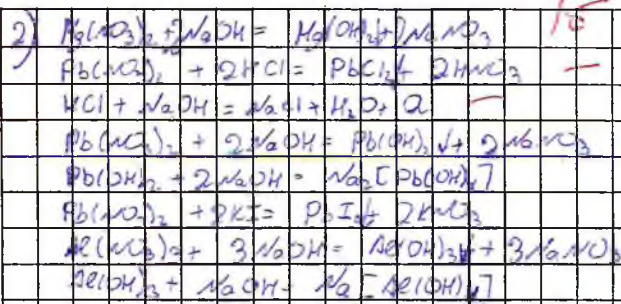 2) Mg(NO3)2 + 2NaOH = Mg(OH)2↓ + 2NaNO3
Pb(NO3)2 + 2HCl = PbCl2↓ + 2HNO3
HCl + NaOH = NaCl + H2O + Q
Pb(NO3)2 + 2NaOH = Pb(OH)2↓ + 2NaNO3
Pb(OH)2 + 2NaOH = Na2[Pb(OH)4]
Pb(NO3)2 + 2KI = PbI2↓ + 2KNO3
Al(NO3)3 + 3NaOH = Al(OH)3↓ + 3NaNO3
Al(OH)3 + NaOH = Na[Al(OH)4]